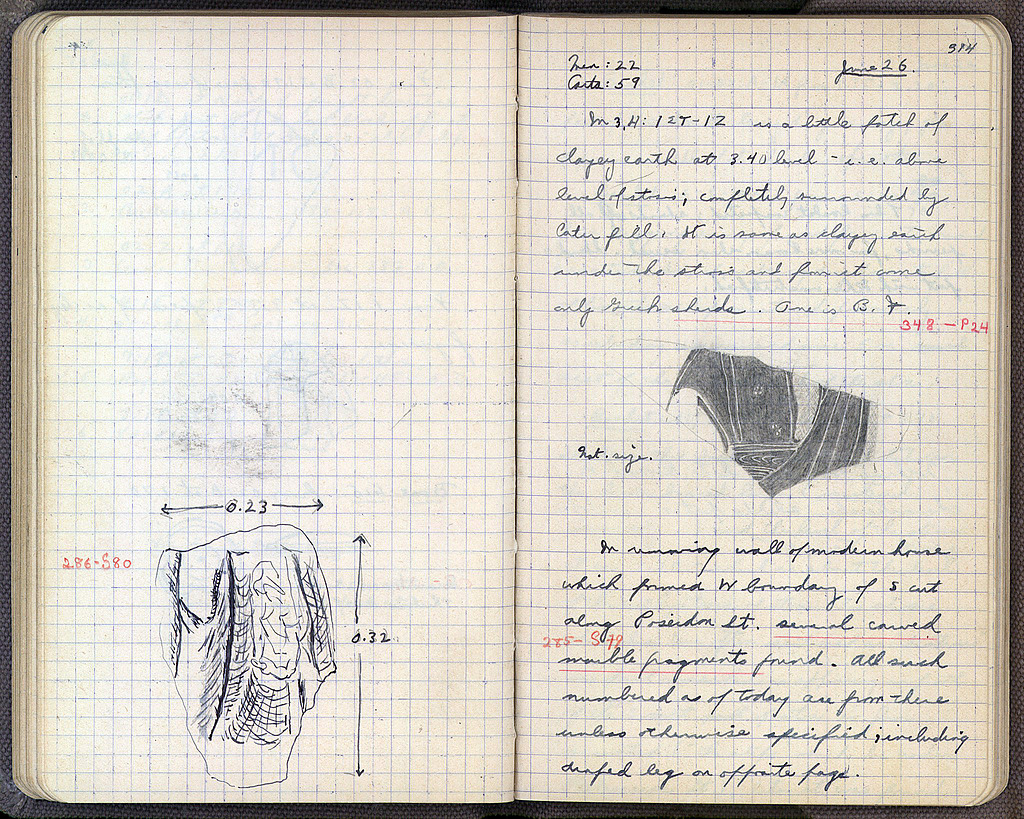 0.23
286-S80
0.32
384
Men: 22
June 26.
Carts: 59
In 3,4: 12T-12 is a little patch of
clayey earth at 3.40 level - i.e. above
level of stosis; completely surrounded by
later fill. It is same as clayey earth
under the strosis and from it come
only Greek sherds. One is B. F.
348 - P24
Nat. size.
In removing wall of modern house
which formed W boundary of S cut
along Poseidon St. several carved
285- S79
marble fragments found. All such
numbered as of today are from there
unless otherwise specified; including
draped leg on opposite page.